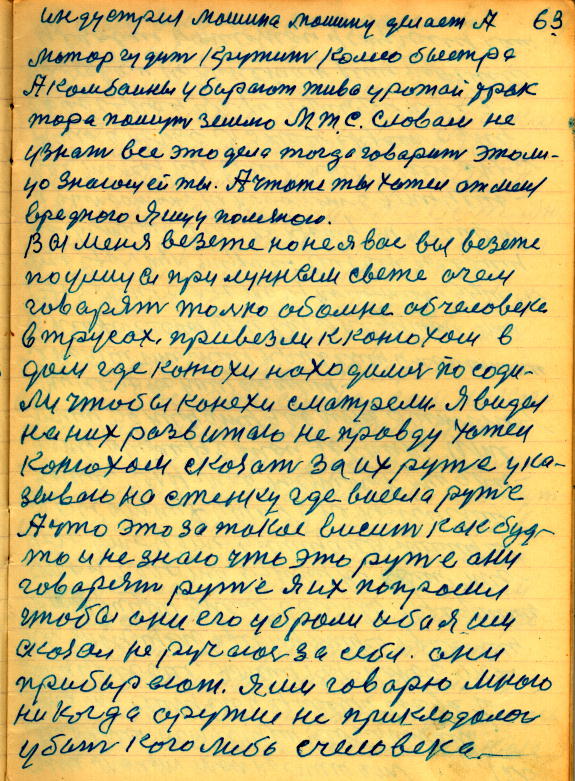 индустрия машина машину делает А 63
мотор гудит крутит колесо быстра
А камбайны убирают жива урожай трак
тара пашут землю М.Т.С. словам не
узнат все это дела тогда говарит этоли-
цо знающей ты. А чтоже ты хотел
вредного я ищу полязного.
Вы меня везете но не я вас вы везете
по улице при лунныем свете очем
говарят толко обомне обчеловеке
в трусах. привезли к конюхом в
дом где конюхи находилися посоди-
ли чтобы конехи сматрели. Я видел
на них развитаю не правду хотел
конюхом сказат за их ружё ука-
зываю на стенку где висела ружё
А что это за такое висит как буд-
то и не знаю что это ружё ани
говарят ружё я их попросил
чтобы ани его уброли ибо я им
сказал не ручаюс за себя. ани
прибырают. Я им говарю много
никогда аружие не прикладалос
убит кого либо с человека